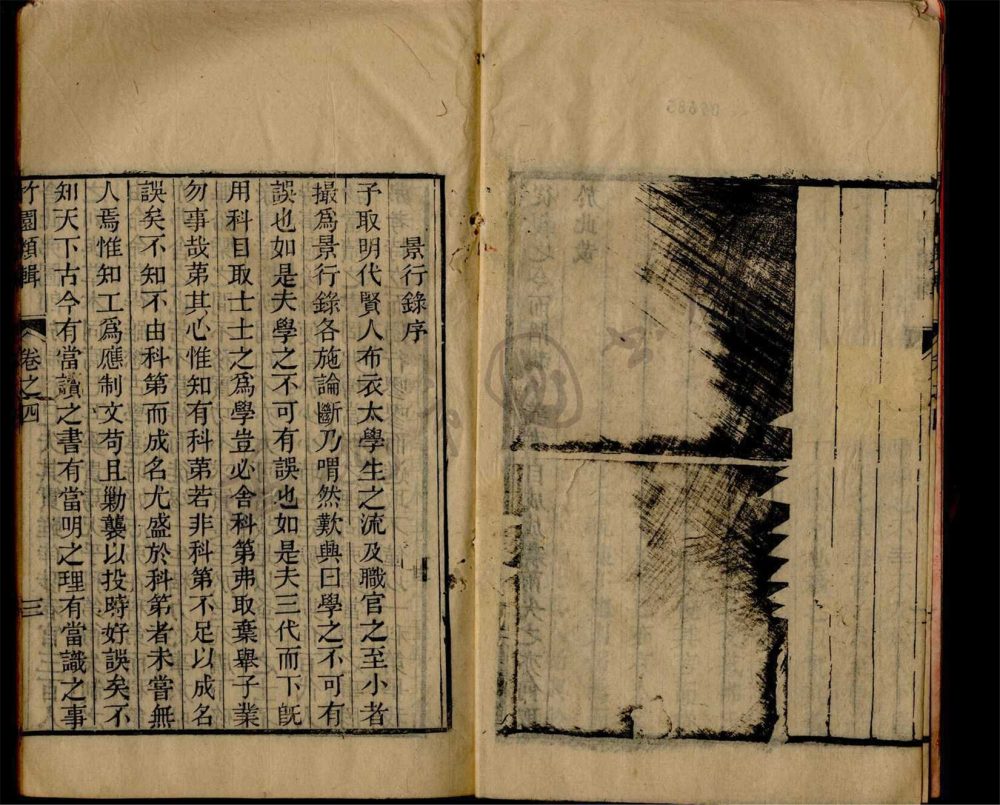 景行錄序
予取明代賢人布衣太學生之流及職官之至小者
撮爲景行錄各施論斷乃喟然歎興曰學之不可有
誤也如是夫學之不可有誤也如是夫三代而下旣
用科目取士士之爲學豈必舍科第弗取棄舉子業
勿事哉苐其心惟知有科苐若非科第不足以成名
誤矣不知不由科第而成名尤盛於科第者未嘗無
人焉惟知工爲應制文苟且勦襲以投時好誤矣不
知天下古今有當讀之書有當明之理有當識之事
竹園類輯 卷之四 三